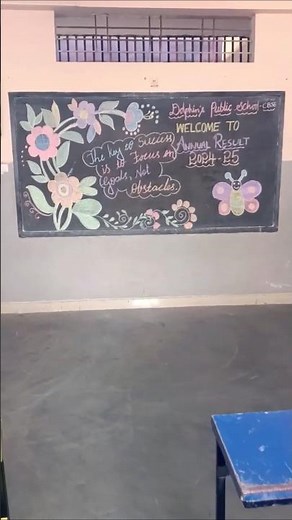 Dolphin's Public School-CBSE
WELCOME TO
ANNUAL RESULT
2024-25
The key to Success
is to Focus on
Goals, Not
Obstacles.